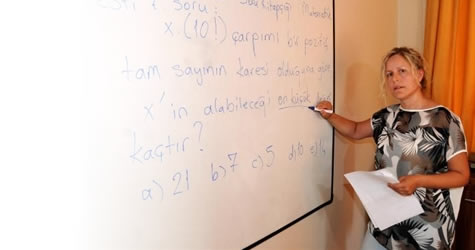 soru: Matematik
x.(10!) çarpımı bir pozitif
tam sayının karesi olduğuna göre
x'in alabileceği en küçük
kaçtır?
a) 21 b) 7 c) 5 d) 10 e) 14